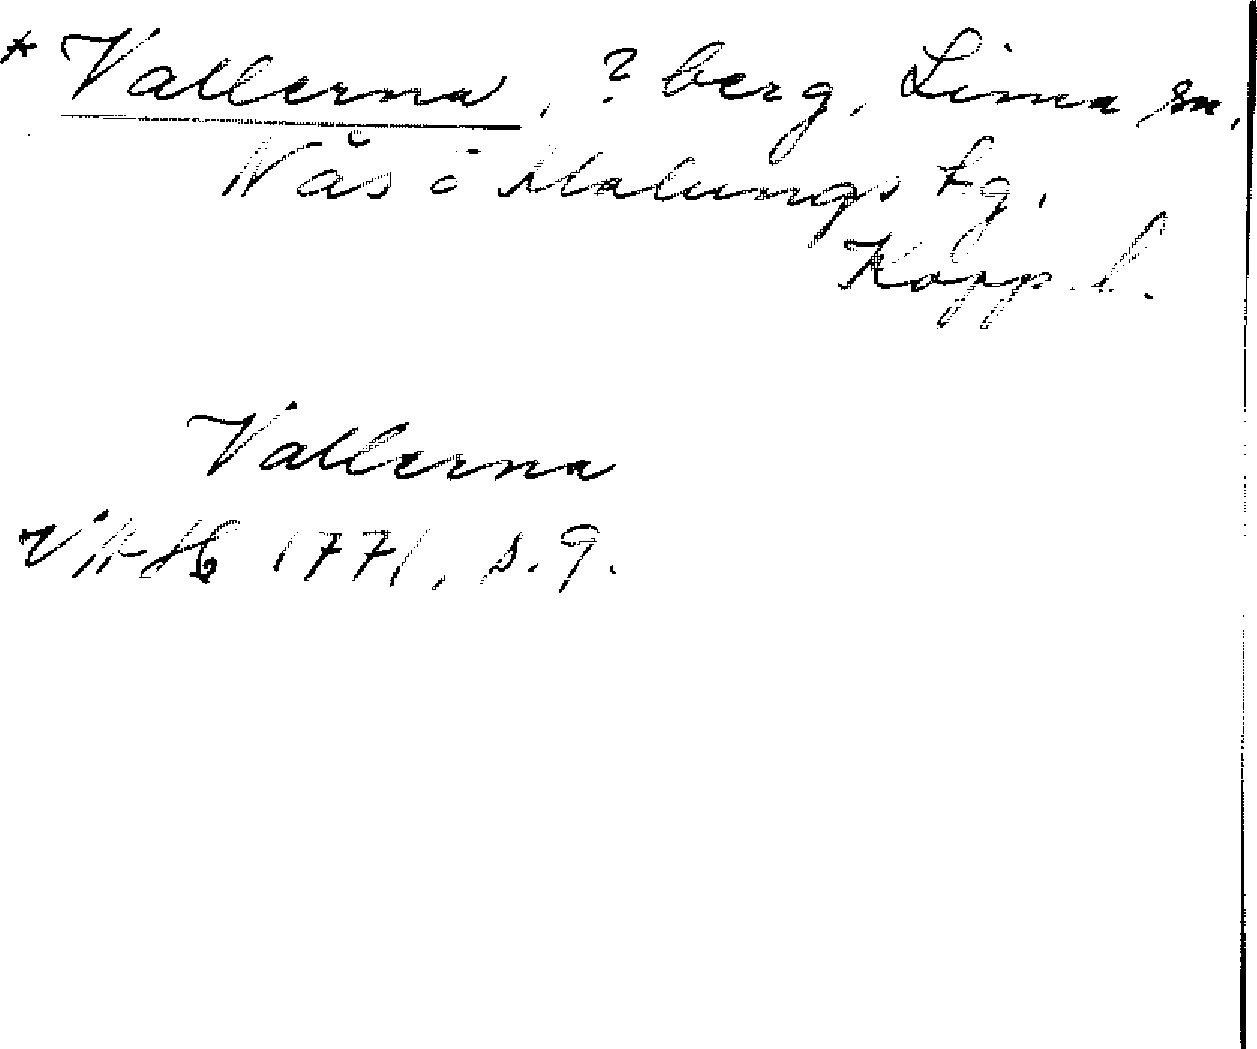 * Vallerna, ? berg, Lima sn,
Näs o Malungs tg,
Kopp. l.
Vallerna
1771, s. 9.